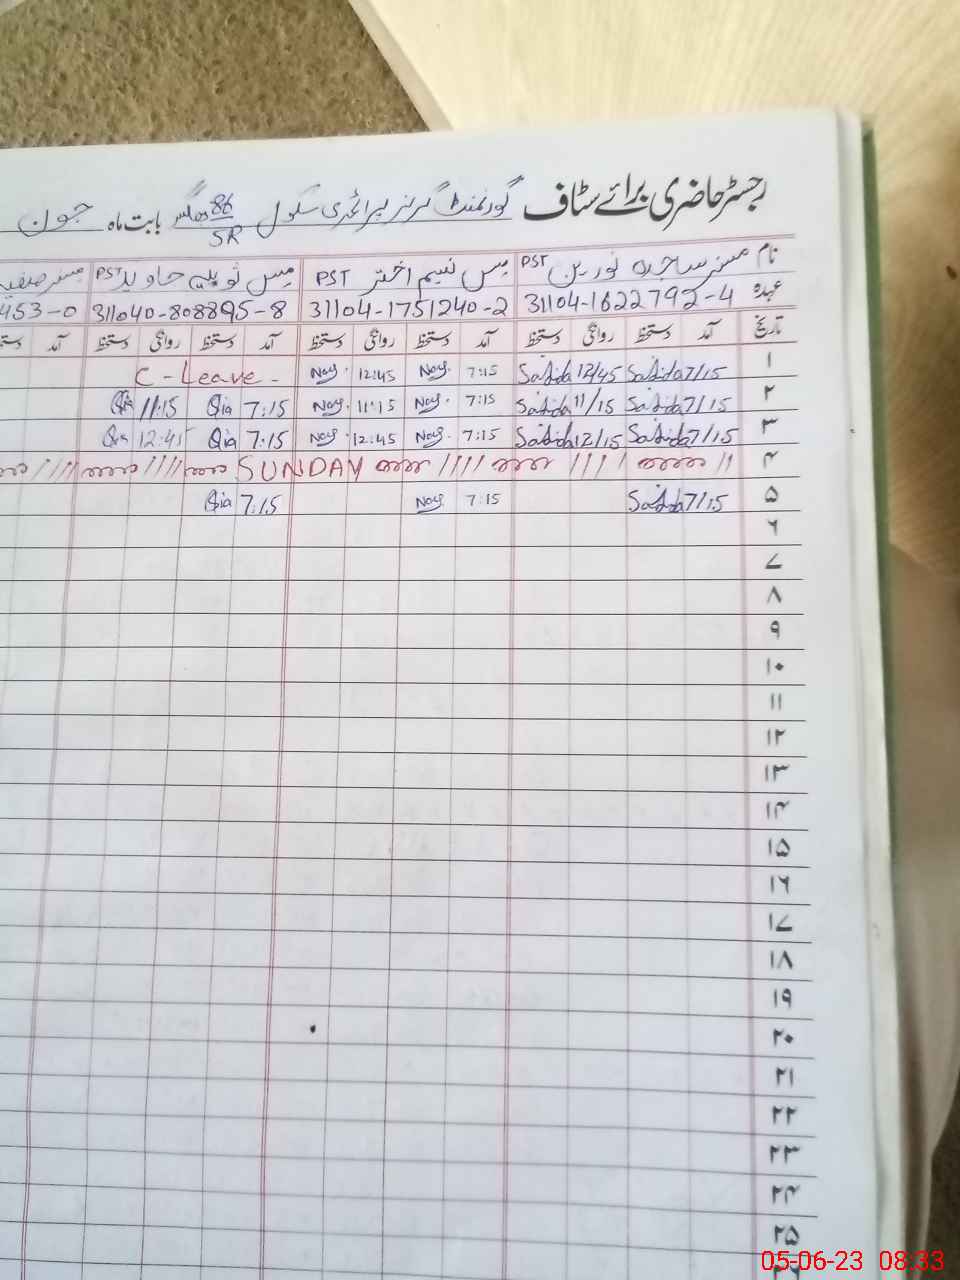 رجسٹر حاضری برائے سٹاف گورنمنٹ گرلز پرائمری سکول 86/5R بابت ماہ جون
نام مسز ساجدہ نورین PST مس نسیم اختر PST مس ثوبیہ جاوید PST مسز صفیہ
عہدہ 31104-1622792-4 31104-1751240-2 311040-808895-8 453-0
تاریخ آمد دستخط روانگی دستخط آمد دستخط روانگی دستخط آمد دستخط روانگی دستخط آمد
۱ 7/15 Sajida 12/45 Sajida 7:15 12:45 C-Leave
۲ 7/15 Sajida 11/15 Sajida 7:15 11:15 7:15 11:15
۳ 7/15 Sajida 12/15 Sajida 7:15 12:45 7:15 12:45
۴ SUNDAY
۵ 7/15 Sajida 7:15 7:15
۶
۷
۸
۹
۱۰
۱۱
۱۲
۱۳
۱۴
۱۵
۱۶
۱۷
۱۸
۱۹
۲۰
۲۱
۲۲
۲۳
۲۴
۲۵
05-06-23 08:33